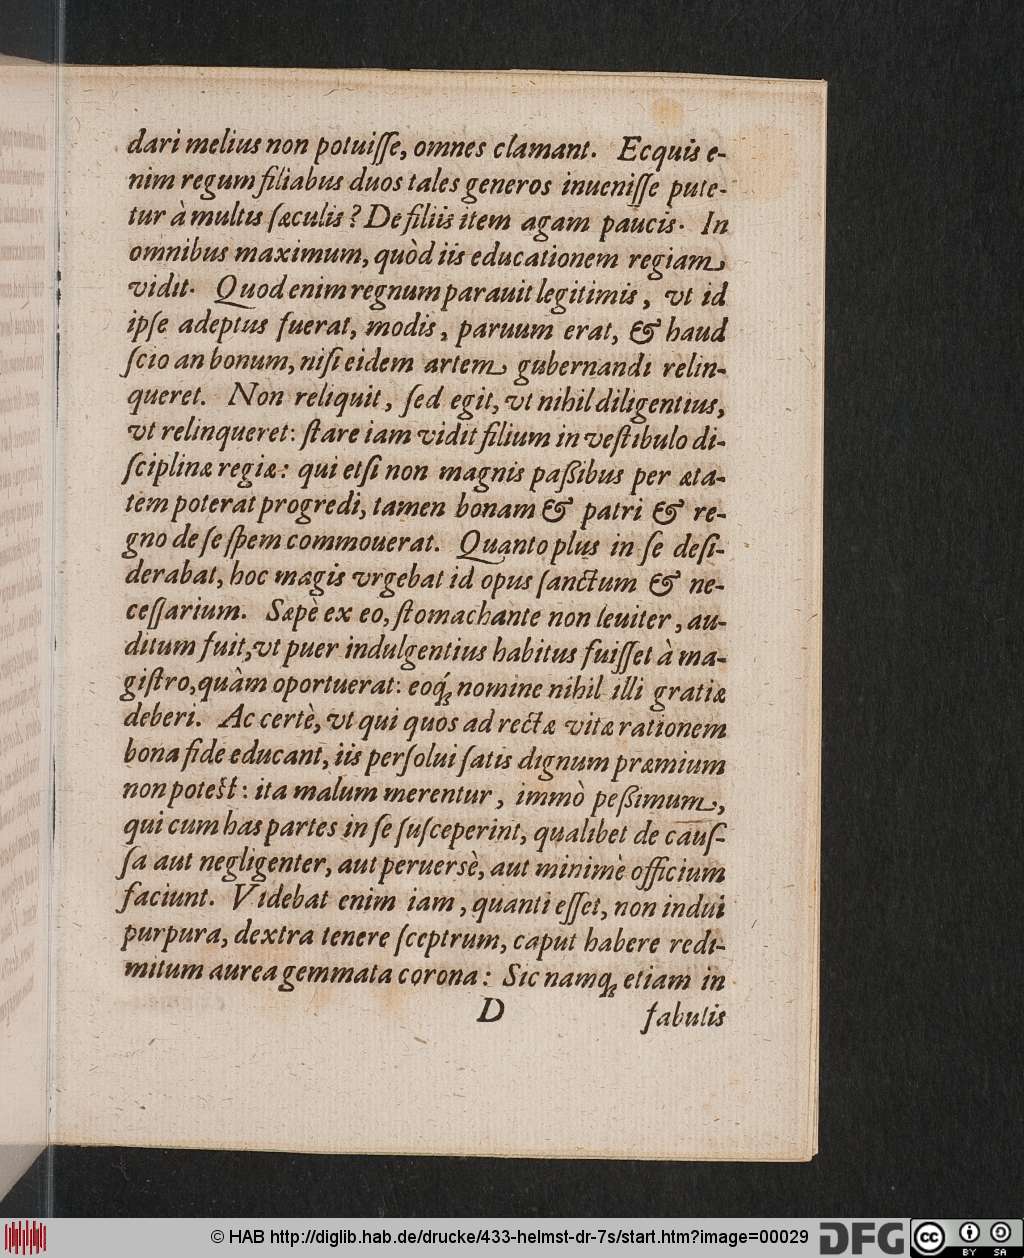 dari melius non potuiſſe, omnes clamant. Ecquis e-
nim regum filiabus duos tales generos inueniſſe pute-
tur à multis ſæculis? De filiis item agam paucis. In
omnibus maximum, quòd iis educationem regiam
vidit. Quod enim regnum parauit legitimis, vt id
ipſe adeptus fuerat, modis, paruum erat, & haud
ſcio an bonum, niſi eidem artem gubernandi relin-
queret. Non reliquit, ſed egit, vt nihil diligentius,
vt relinqueret: ſtare iam vidit filium in veſtibulo di-
ſciplinæ regiæ: qui etſi non magnis paßibus per æta-
tem poterat progredi, tamen bonam & patri & re-
gno de ſe ſpem commouerat. Quanto plus in ſe deſi-
derabat, hoc magis vrgebat id opus ſanctum & ne-
ceſſarium. Sæpè ex eo, ſtomachante non leuiter, au-
ditum fuit, vt puer indulgentius habitus fuiſſet à ma-
giſtro, quàm oportuerat: eoq́ꝫ nomine nihil illi gratiæ
deberi. Ac certè, vt qui quos ad rectæ vitæ rationem
bona fide educant, iis perſolui ſatis dignum præmium
non poteſt: ita malum merentur, immò peßimum,
qui cum has partes in ſe ſuſceperint, qualibet de cauſ-
ſa aut negligenter, aut peruersè, aut minimè officium
faciunt. Videbat enim iam, quanti eſſet, non indui
purpura, dextra tenere ſceptrum, caput habere redi-
mitum aurea gemmata corona: Sic namqꝫ etiam in
D fabulis
© HAB http://diglib.hab.de/drucke/433-helmst-dr-7s/start.htm?image=00029 DFG cc BY SA